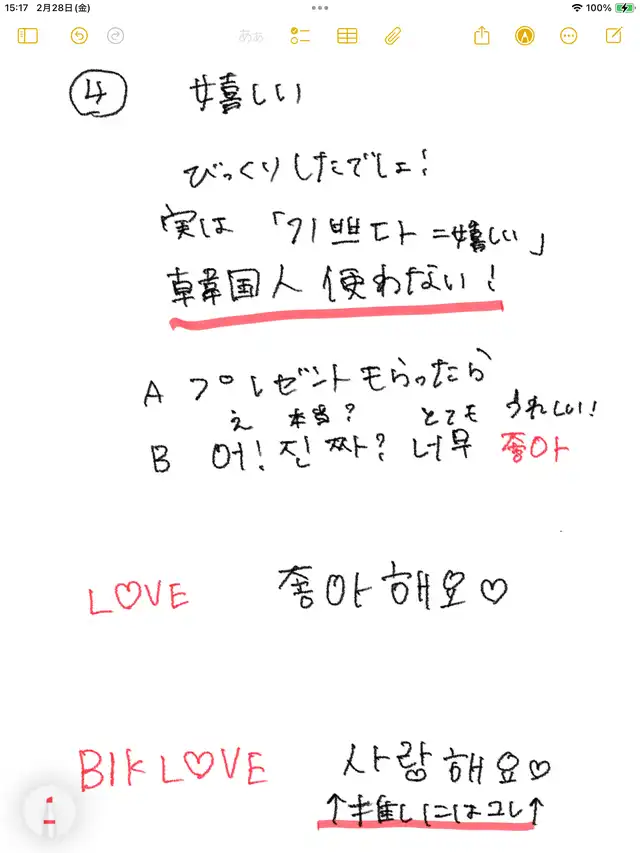 15:17 2月28日(金)
100%
あぁ
④ 嬉しい
びっくりしたでしょ!
実は「기쁘다=嬉しい」
韓国人使わない!
A プレゼントもらったら
え 本当? とても うれしい!
B 어! 진짜? 너무 좋아
LOVE 좋아해요♡
BIK LOVE 사랑해요♡
↑推しにはコレ↑